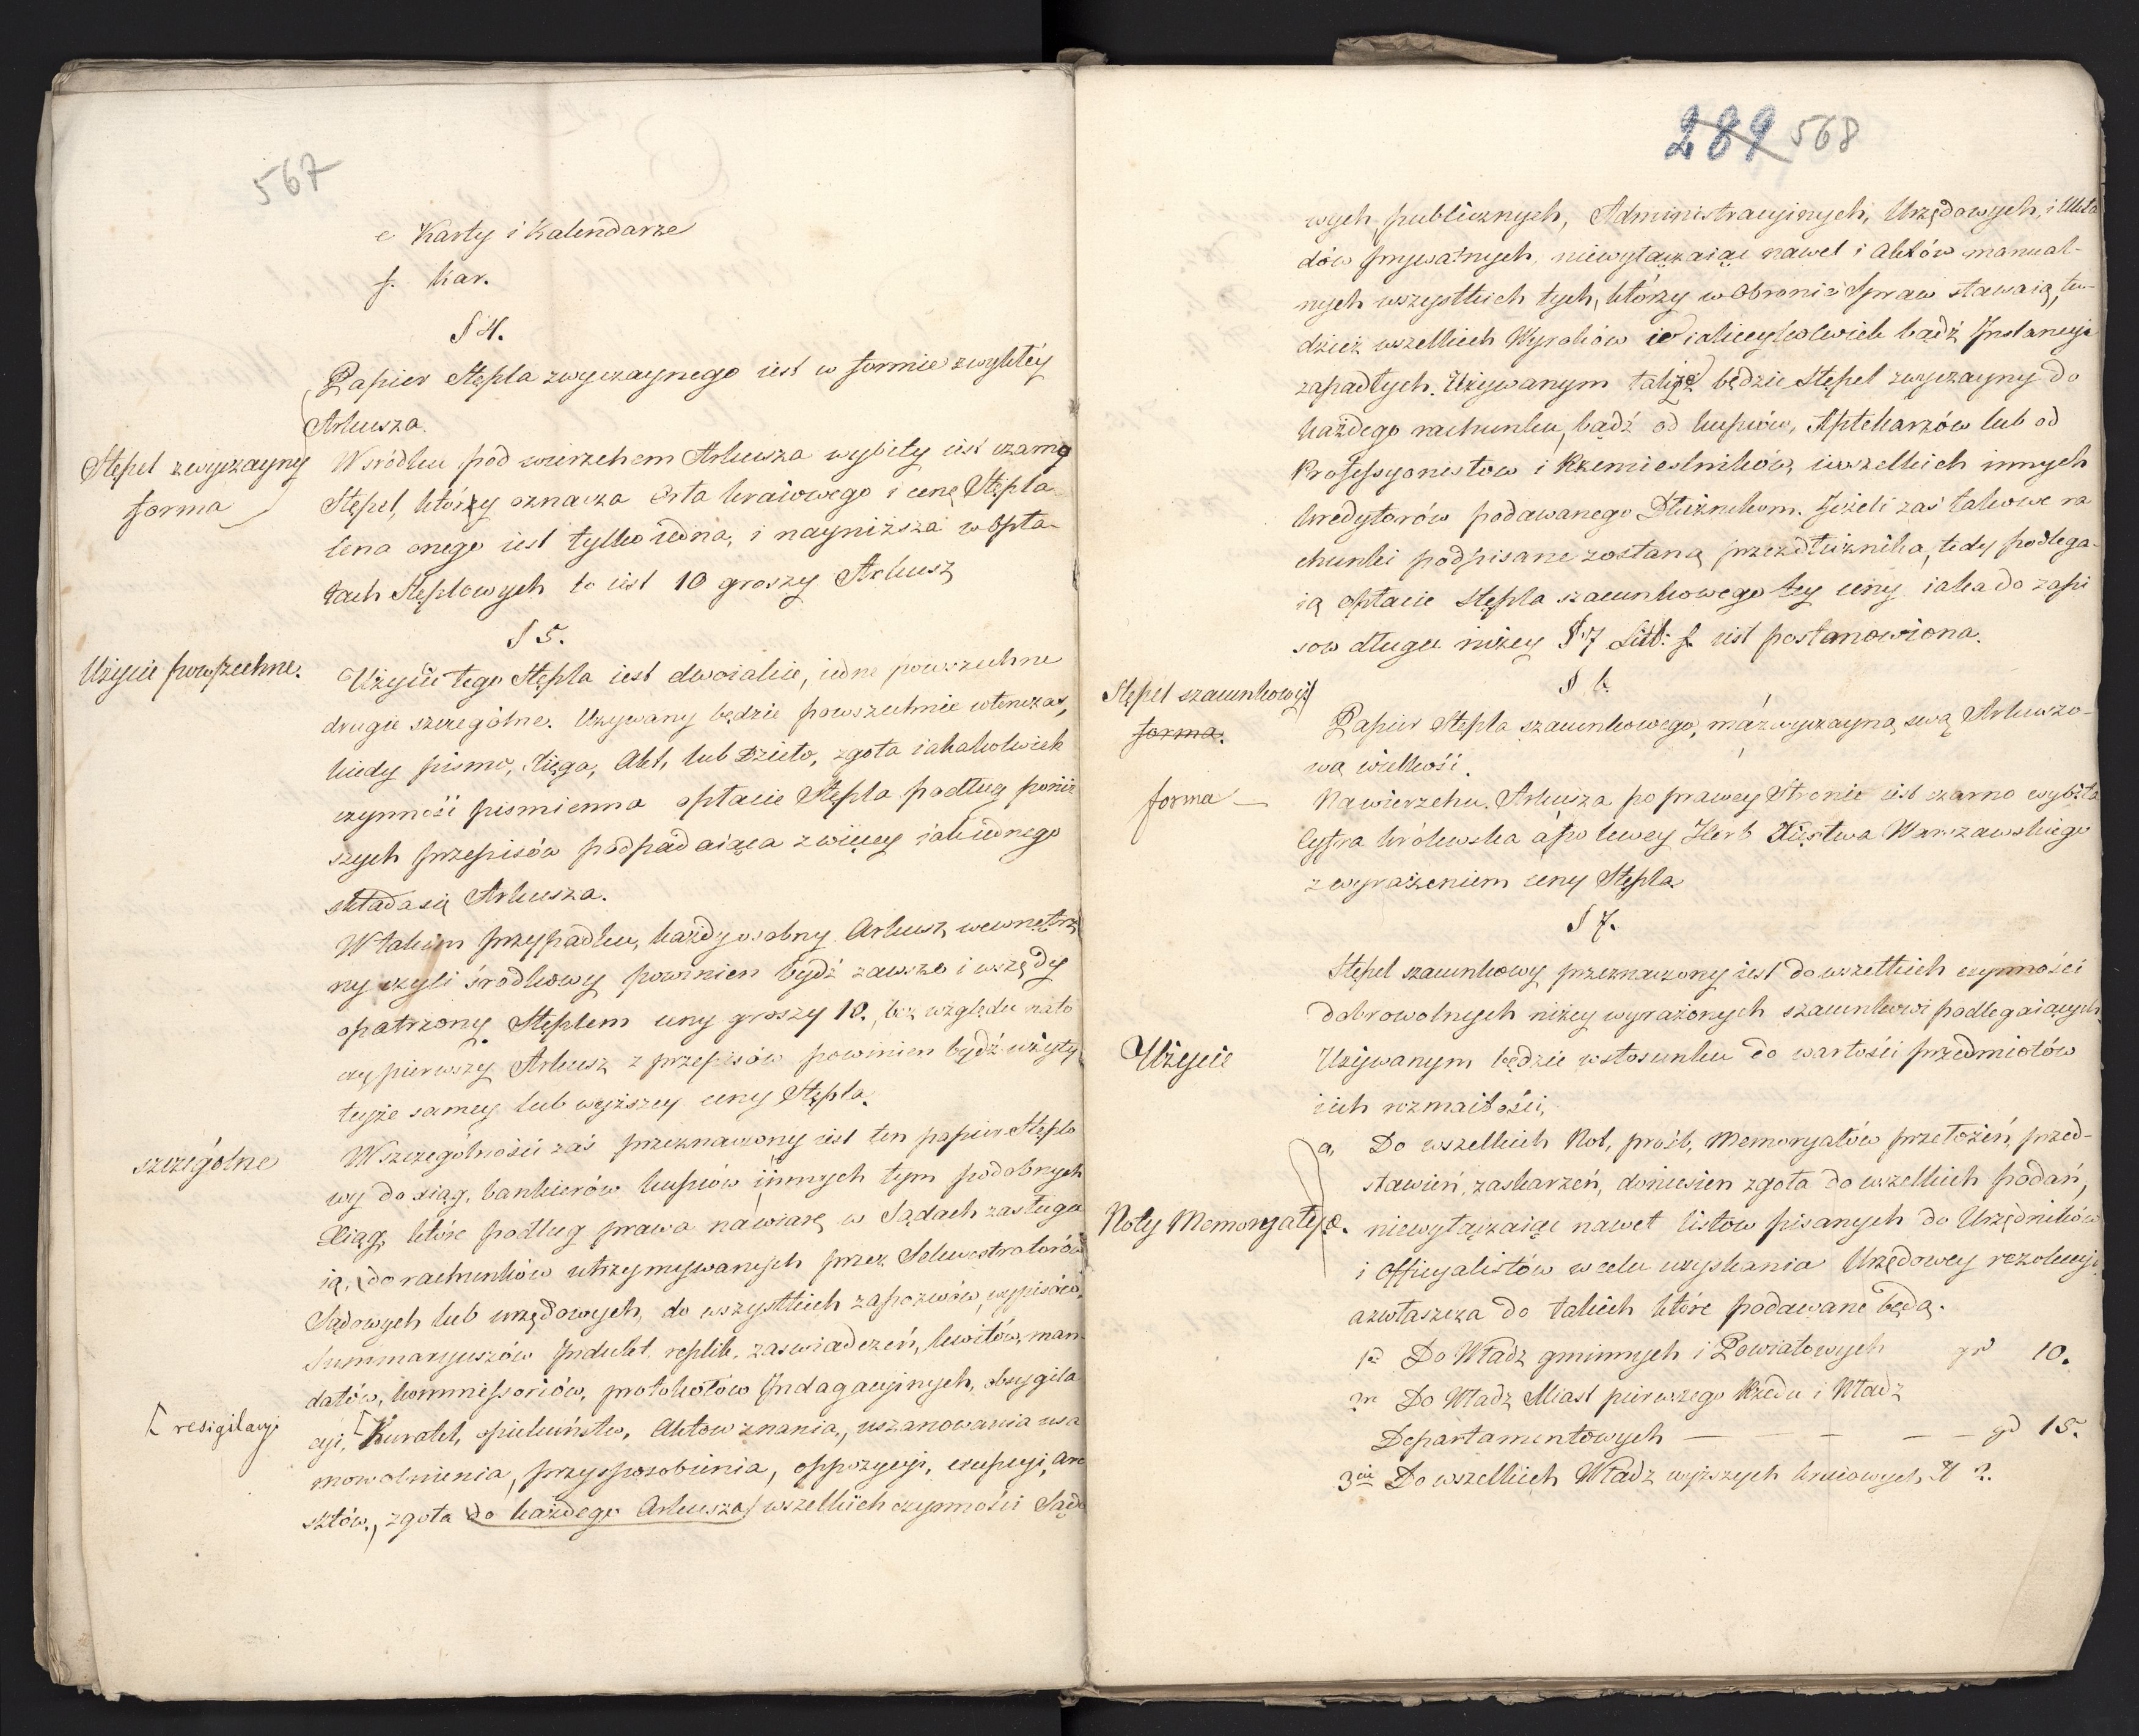 567
e Karty i Kalendarze
f. Kar.
§ 4.
Papier Stępla zwyczaynego iest w formie zwykłey
Arkusza.
Stępel zwyczayny
forma
Wśrodku pod wierzchem Arkusza wybity iest czarny
Stępel, który oznacza Orła kraiowego i cenę Stępla
Cena onego iest tylko iedna, i nayniższa w opła-
tach Stęplowych to iest 10 groszy Arkusz
§ 5.
Użycie powszechne.
Użycie tego Stępla iest dwoiakie, iedne powszechne
drugie szczególne. Używany będzie powszechnie wtenczas,
kiedy pismo, Xięga, Akt, lub Dzieło, zgoła iakakolwiek
czynność pismienna opłacie Stępla podług poniż
szych przepisów podpadaiąca z więcey iak iednego
składa się Arkusza.
W takim przypadku, każdy osobny Arkusz wewnętrz
ny czyli środkowy powinien bydź zawsze i wszędy
opatrzony Stęplem ceny groszy 10. bez względu na to
czy pierwszy Arkusz z przepisów powinien bydź użyty
teyże samey lub wyższey ceny Stępla.
szczególne
W szczególności zaś przeznaczony iest ten papier Stęplo
wy do xiąg, bankierów kupców i innych tym podobnych
Xiąg, które podług prawa na wiarę w Sądach zasługu
ią, do rachunków utrzymywanych przez Sekwestratorów
Sądowych lub urzędowych, do wszystkich zapozwów, wypisów,
Summaryuszów Indukt. replik. zaswiadczeń, kwitów, man-
datów, kommissoriów, protokołów Indagacyinych, obsygila
[ resigilacyi
cyi, [ Kuratel, opiekuństw, Aktow znania, uszanowania usa
mowolnienia, przysposobienia, oppozycyi, excepcyi, are
sztów, zgoła do każdego Arkusza wszelkich czynności Sądo
289 568
wych publicznych, Administracyinych, Urzędowych, i Ukła
dów prywatnych, niewyłączaiąc nawet i Aktów manual-
nych wszystkich tych, którzy w Obronie Spraw stawaią, tu-
dzież wszelkich Wyroków w iakieykolwiek bądź Instancyi
zapadłych. Używanym także będzie Stępel zwyczayny do
każdego rachunku, bądź od kupców, Aptekarzów lub od
Professyonistow i Rzemieslników, i wszelkich innych
kredytorów podawanego Dłużnikom. Jeżeli zaś takowe ra
chunki podpisane zostaną przez dłużnika, tedy podlega-
ią opłacie Stępla szacunkowego tey ceny iaka do zapi
sow długu niżey § 7 Litt: f. iest postanowiona.
§ 6.
Stępel szacunkowy
forma.
Papier Stępla szacunkowego, ma zwyczayną swą Arkuszo-
wą wielkość.
forma —
Na wierzchu Arkusza po prawey Stronie iest czarno wybita
Cyfra królewska a po lewey Herb Xięstwa Warszawskiego
z wyrażeniem ceny Stępla
§ 7.
Stępel szacunkowy przeznaczony iest do wszelkich czynności
dobrowolnych niżey wyrażonych szacunkowi podlegaiących.
Użycie
Używanym będzie w stosunku do wartości przedmiotów
i ich rozmaitości,
a, Do wszelkich Not, prośb, Memoryałów przełożeń, przed-
stawień, zaskarżeń, doniesien zgoła do wszelkich podań,
Noty Memoryały &.
niewyłączaiąc nawet listow pisanych do Urzędników
i Officyalistów w celu uzyskania Urzędowey rezolucyi
a zwłaszcza do takich które podawane będą.
1o Do Władz gminnych i Powiatowych gr 10.
2o Do Władz Miast pierwszego Rzędu i Władz
Departamentowych — — — — — gr 15.
3io Do wszelkich Władz wyższych kraiowych